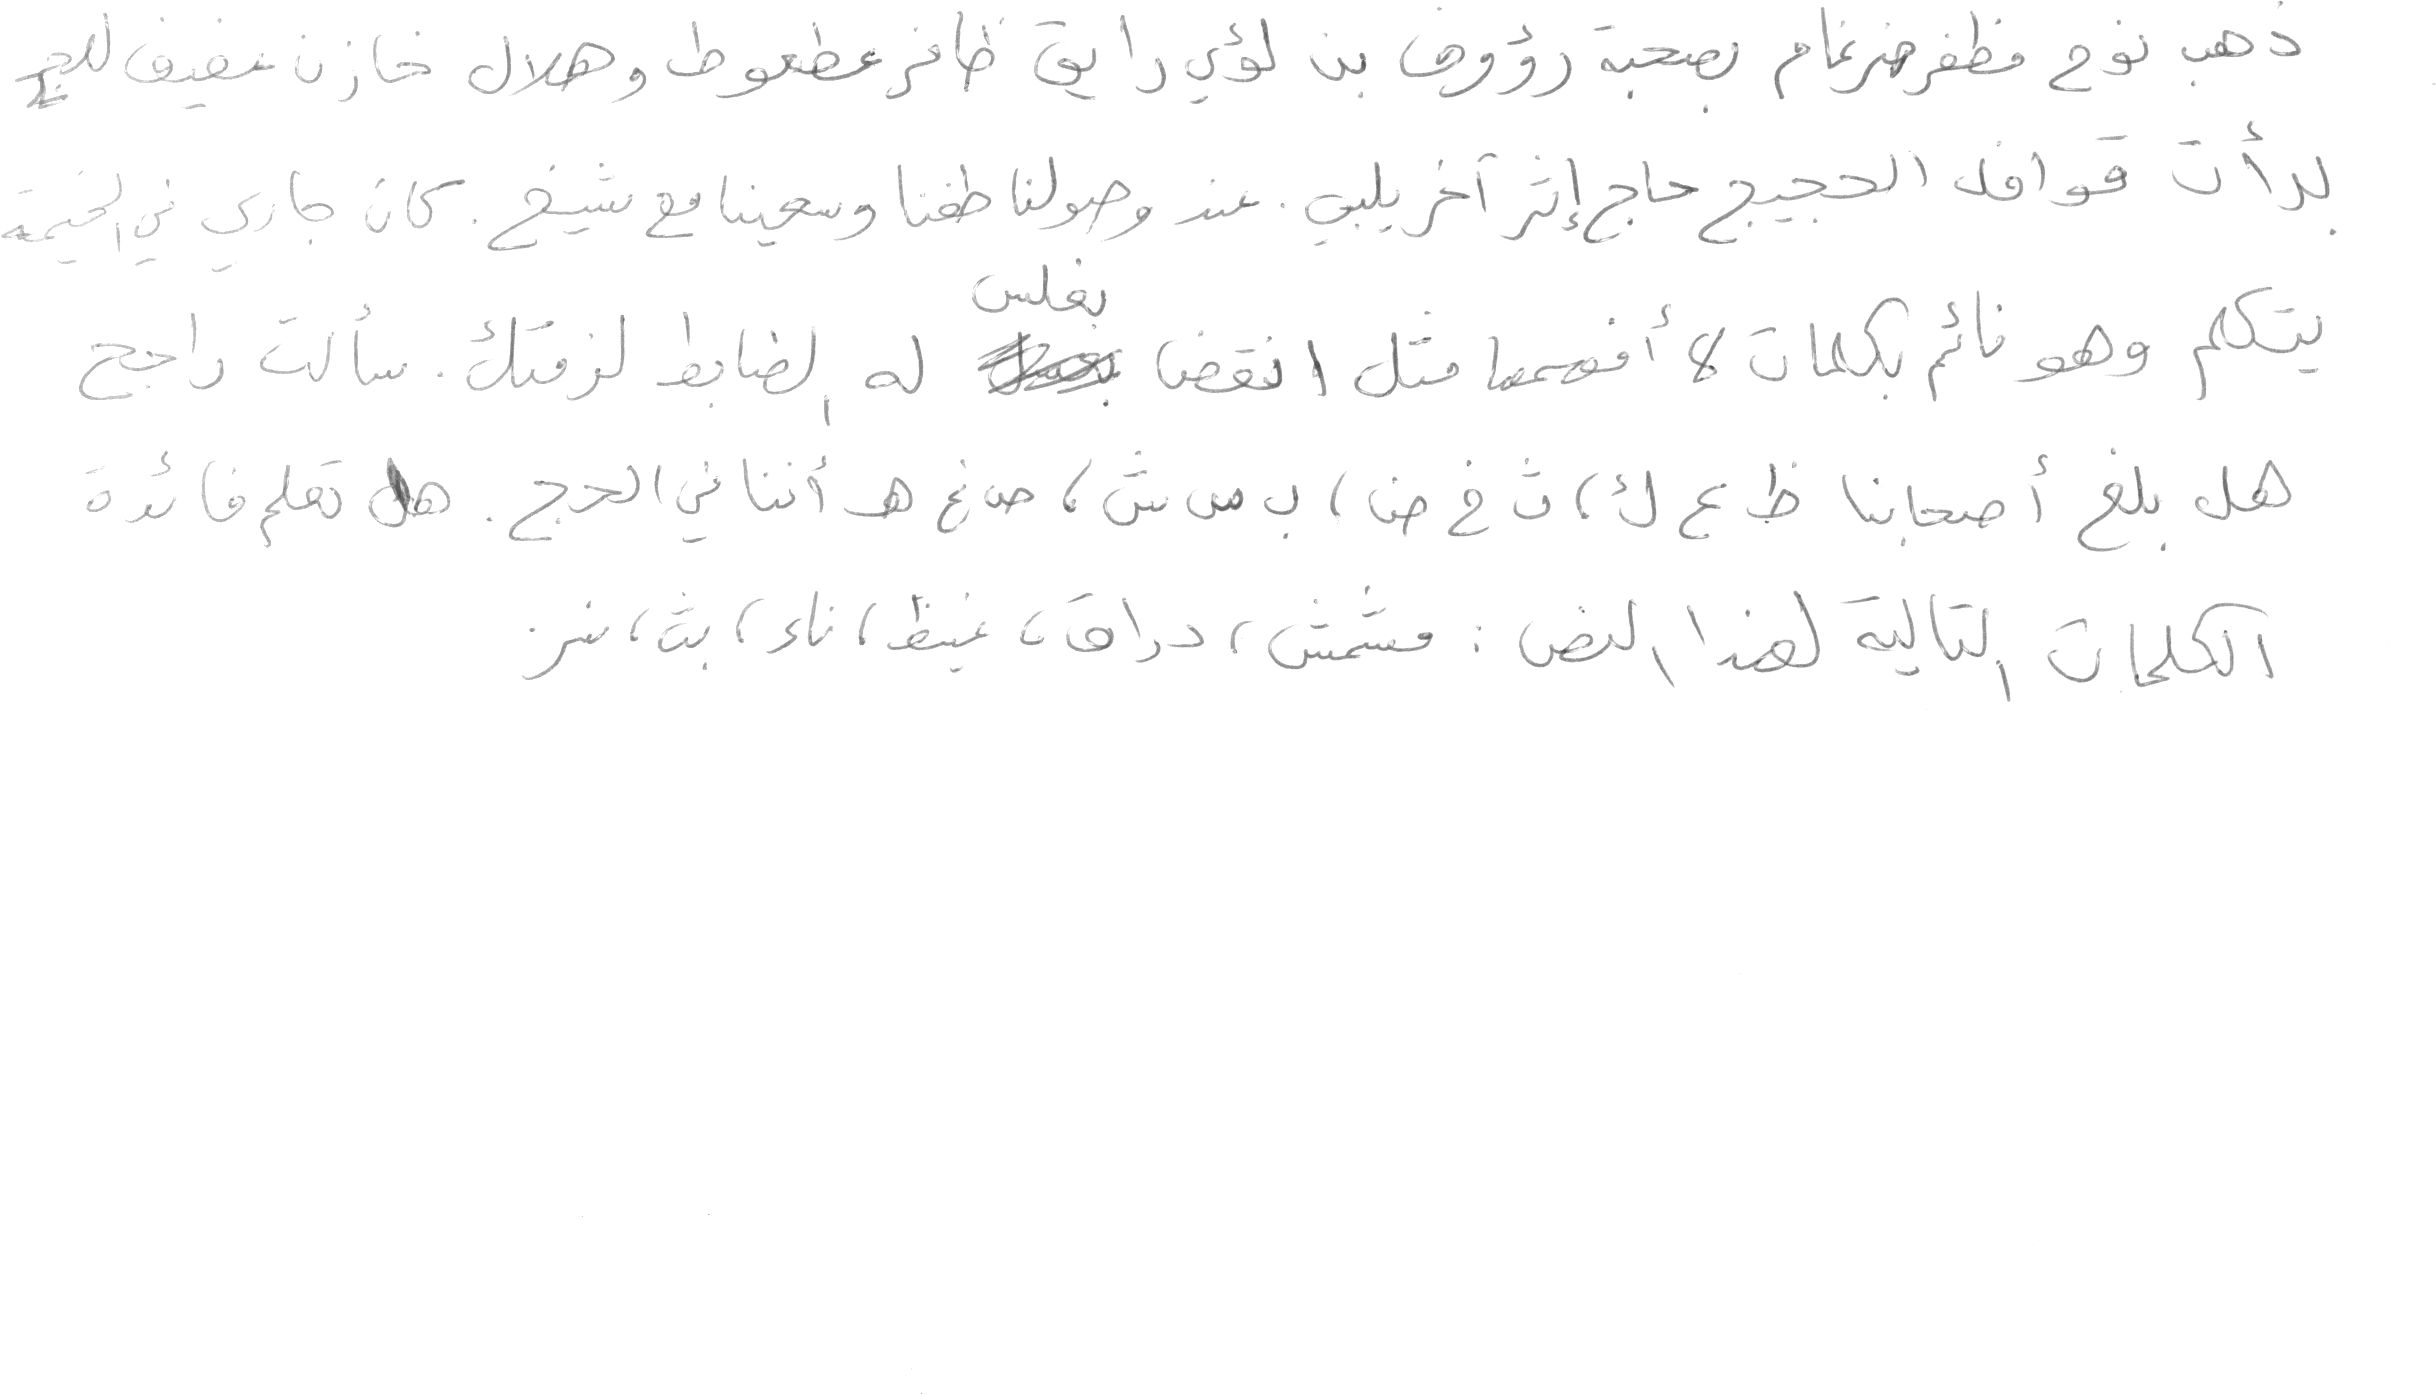 ذهب نوح مظفر ضرغام بصحبة رؤوف بن لؤي رايق ظافر عطعوط وهلال خازن عفيف للحج
بدأت قوافل الحجيج حاج إثر آخر يلبي . عند وصولنا طفنا وسعينا مع شيخ . كان جاري في الخيمة
يتكلم وهو نائم بكلمات لا أفهمها مثل انقضا بغلس له الضابط لزمتك . سألت راجح
هل بلغ أصحابنا ظ ع ك ، ث خ ض ، ب س ش ، ص غ هـ أننا في الحج . هل تعلم فائدة
الكلمات التالية لهذا النص : مشمش ، دراق ، غيظ ، ناء ، بث ، نز